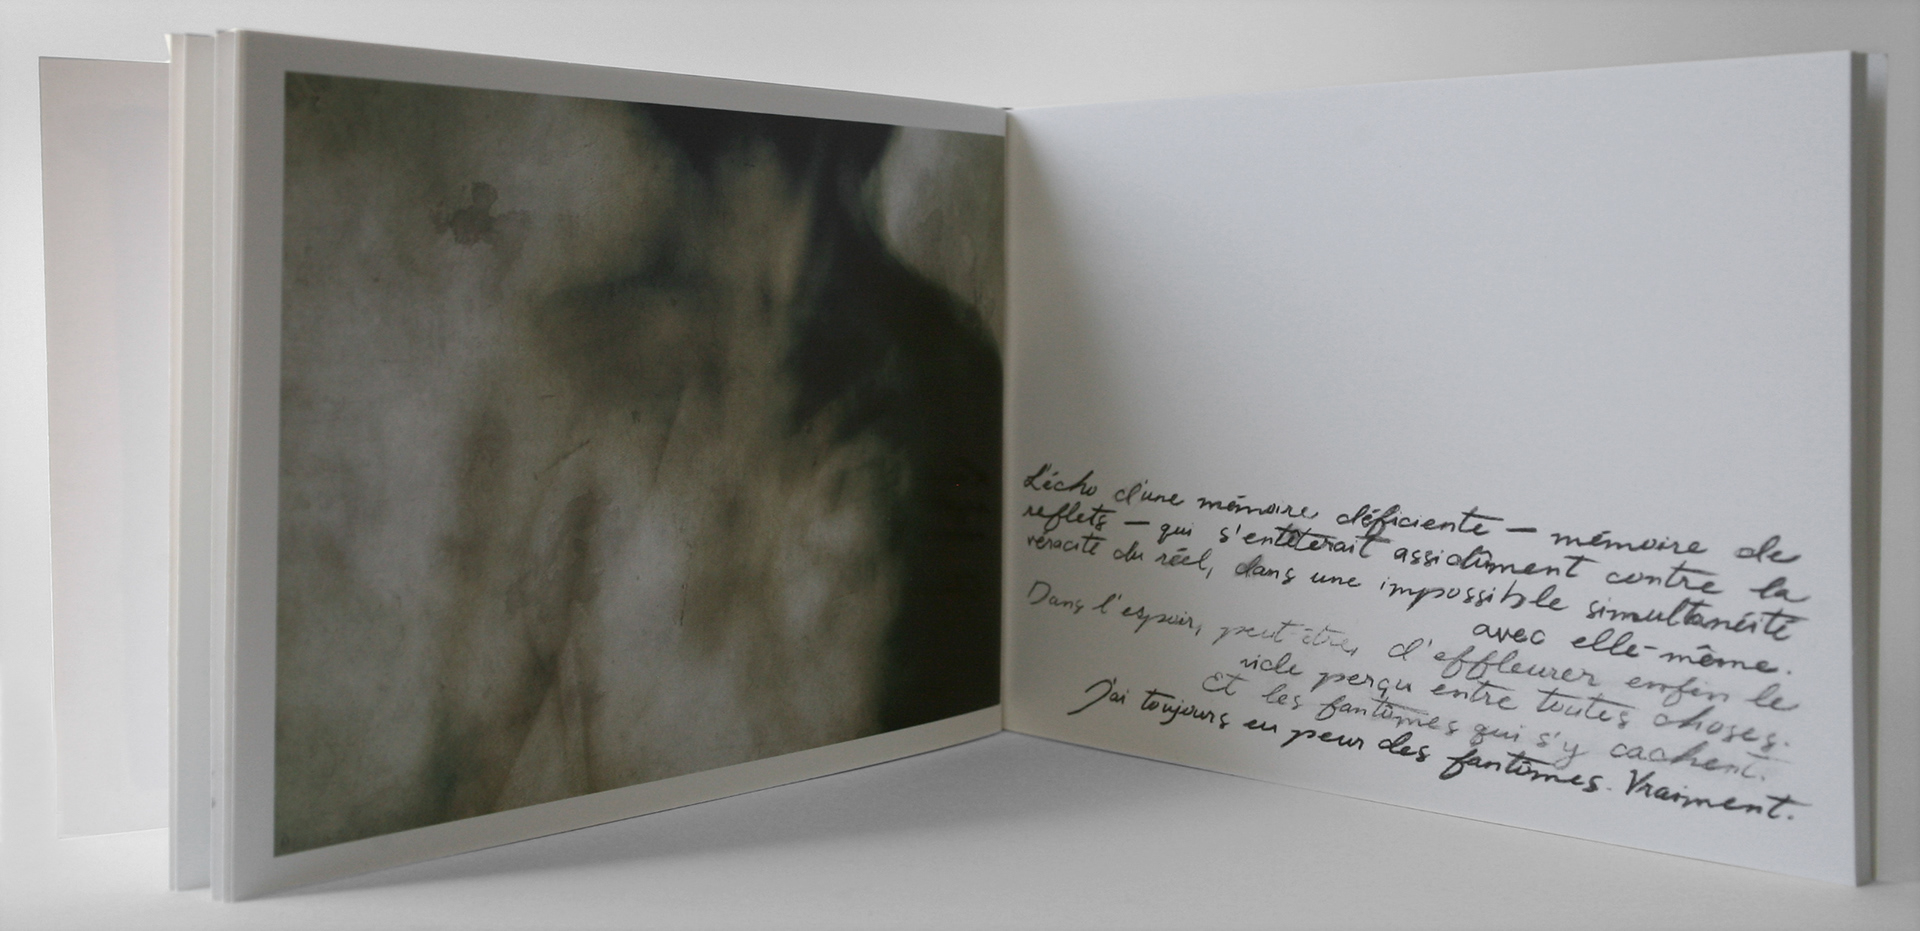 L'écho d'une mémoire déficiente — mémoire de
reflets — qui s'entêterait assidûment contre la
véracité du réel, dans une impossible simultanéité
avec elle-même.
Dans l'espoir, peut-être, d'effleurer enfin le
vide perçu entre toutes choses.
Et les fantômes qui s'y cachent.
J'ai toujours eu peur des fantômes. Vraiment.